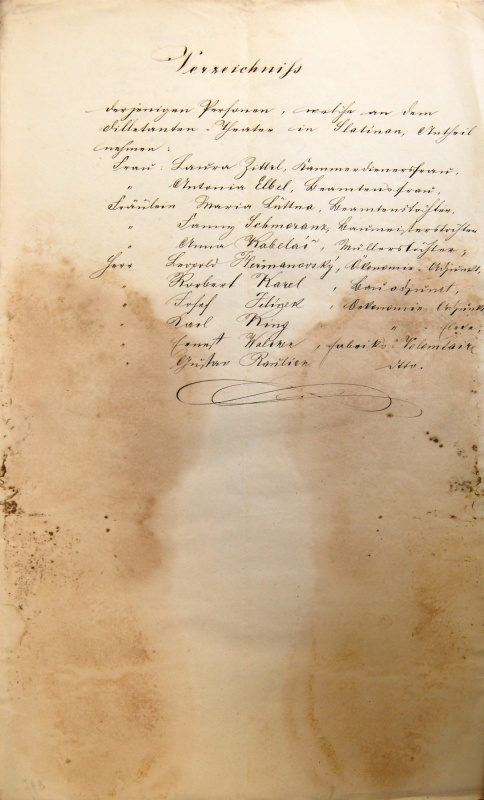 Verzeichniß
derjenigen Personen, welche an dem
Dilletanten-Theater in Slatinan, Antheil
nehmen:
Frau: Laura Zittel, Kammerdienersfrau,
" Antonia Elbel, Beamtensfrau,
Fräulein Maria Lüttna, Beamtenstochter,
" Fanny Schmoranz, Baumeisterstochter
" Anna Kabelač, Müllerstochter,
Herr Leopold Heřmanovský, Ökonomie-Adjunct,
" Norbert Karel " Bauadjunct,
" Josef " Oekonomie-Adjunkt
" Karl King " " Eleve,
" Ernest , Fabriks-Volontaire
" Gustav dtto.